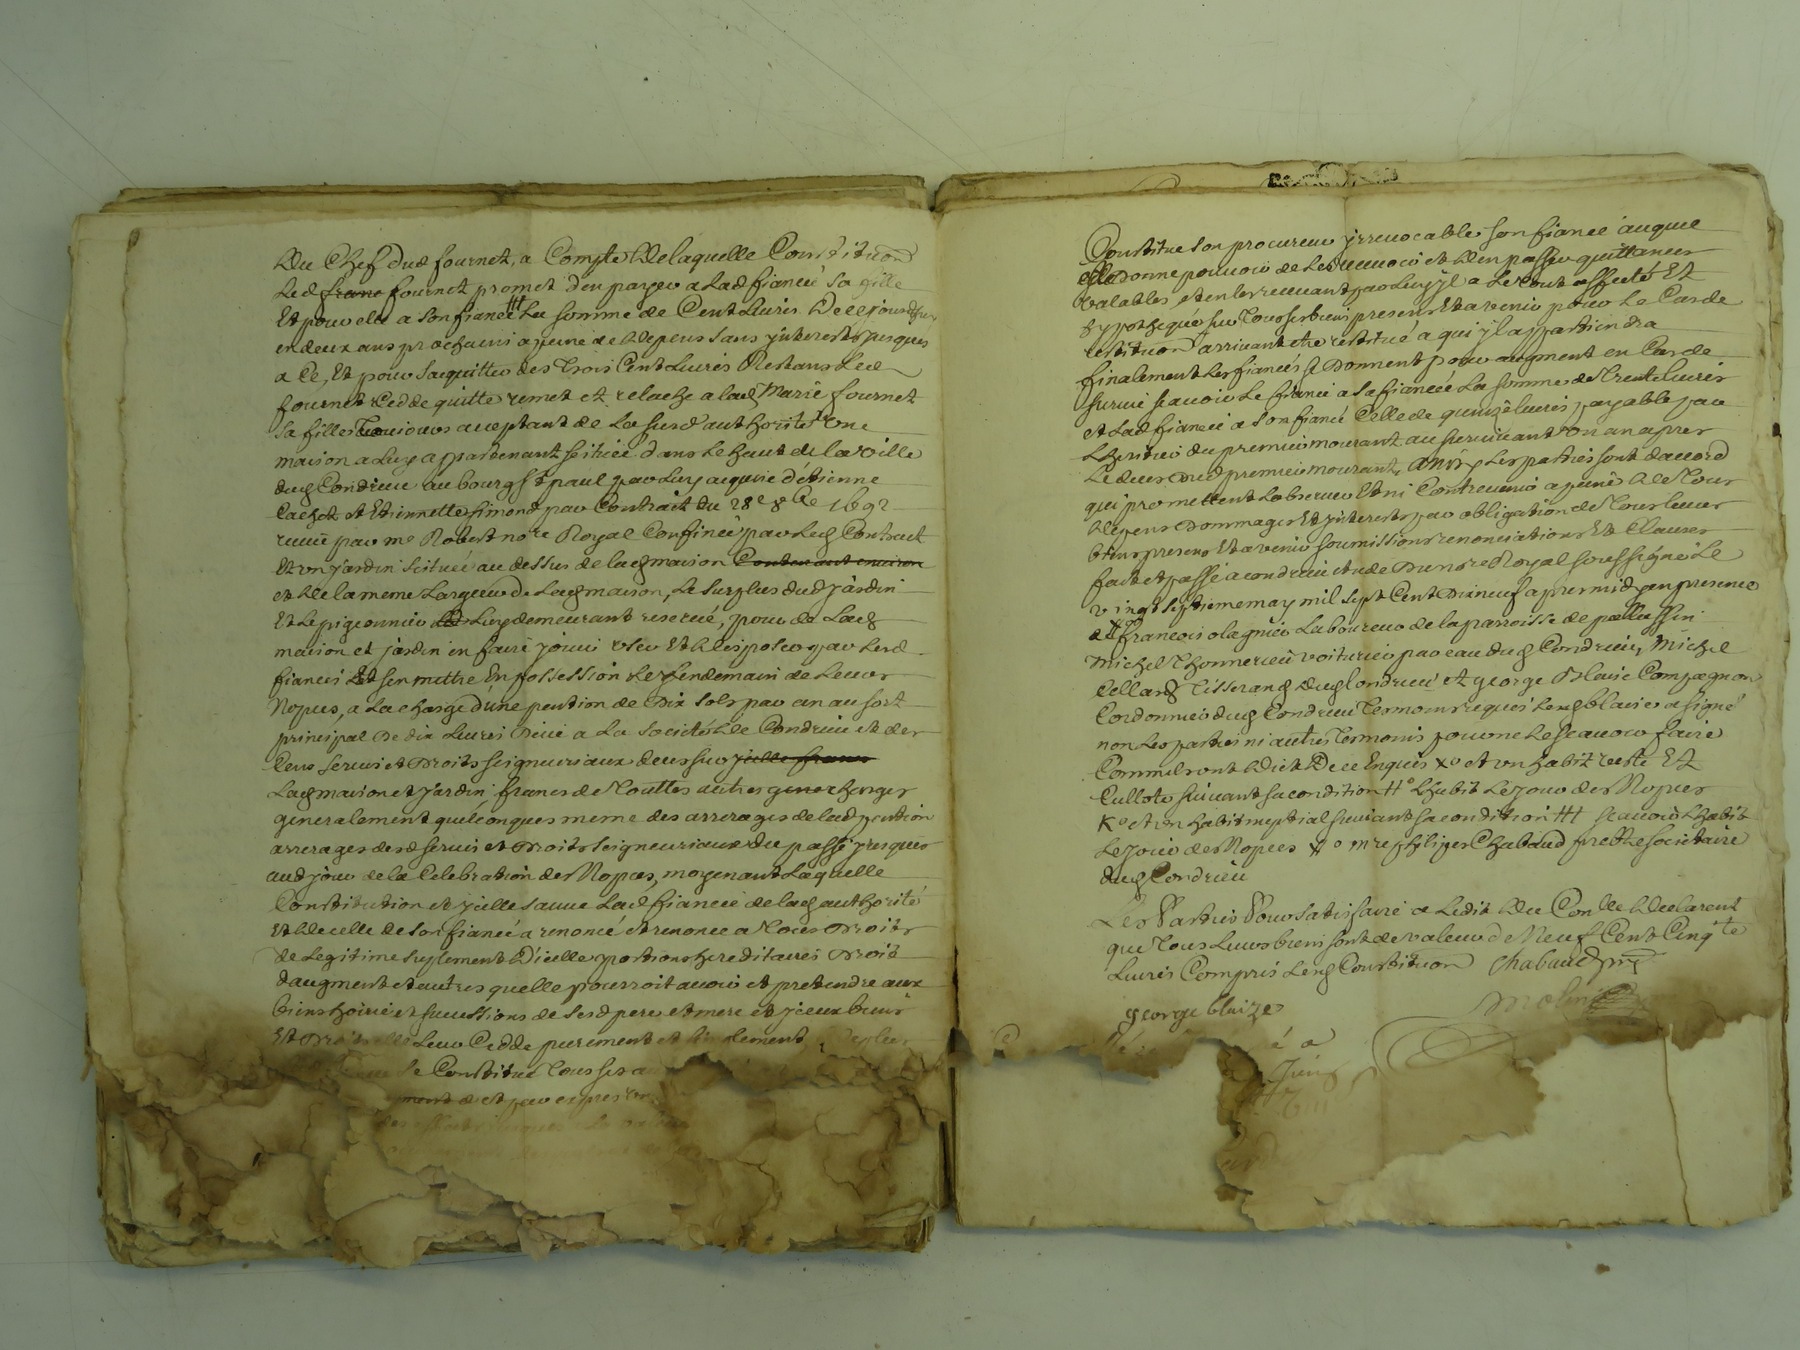 du Chef dud fournet, a Compte de laquelle Constituõn
Led frano fournet promet d'en payer a Lad fiancéé Sa fille
Et pour elle a son fiancé ### La somme de Cent Livres De cejourdhuy
en deux ans prochains a peine de depens sans jnterests jusques
a Ce, Et pour Sacquitter des Trois Cent Livres Restans Led
fournet Cedde quitte remet et relache a lad Marie fournet
Sa fille Toujours aceptant de La susd authorité Une
maison a Luy apartenant scituéé dans Le haut de la Ville
dud Condrieu au bourg St paul par Luy acquise d'étienne
Cachet et Etiennette simond par Contrait du 28e 8bre 1692
receu par me Robert nore Royal Confinéé par Led Contract
Et un jardin scitué au dessus de lad maison Contenant environ
et de la meme Largeur de Lad maison, Le surplus dud jardin
Et Le pigeonnier Luy demeurant reservé, pour de Lad
maison et jardin en faire jouir user Et disposer par Lesd
fiancés Et sen mettre En possession Le Lendemain de Leurs
Nopces, a La charge d'une pention de Dix Sols par an au sort
principal de dix Livres Deüe a La societé de Condrieu et des
Cens servis et droits seigneuriaux deus sur jcelle franc
Lad maison et jardin francs de Touttes autres charges
generalement quelconques meme des arrerages de lad pention
arrerages desd servis et droits seigneuriaux du passé jusques
aud jour de la Celebration des Nopces, moyenant Laquelle
Constitution et jcelle sauve Lad fiancéé de lad authorité
Et de celle de son fiancé a renoncé et renonce a Tous droits
de Legitime suplement D'icelle portions hereditaires droit
daugment et autres quelle pourroit avoir et pretendre aux
biens hoirie et sucessions de Sesd pere et mere et jceux biens
Et droits elle Leur Cedde purement et simplement
se Constitue Tous ses
et par expres
Constitue son procureur jrrevocable son fiancé auquel
elle Donne pouvoir de Les recevoir et d'en passer quittances
valables et en les recevant par Luy jl a Le tout affecté Et
hypothequé sur Tous ses biens presens Et a venir pour Le Cas de
restituõn arrivant etre restitué a qui jl appartiendra
finalement Les fiancés se Donnent pour augment en Cas de
survie scavoir Le fiancé a Sa fiancéé La somme de Trente Livres
et Lad fiancéé a son fiancé Celle de quinze Livres payable par
L'heritier du premier mourant au survivant Un an apres
Le deces dud premier mourant, ainsy Les parties sont d'acord
qui promettent Lobserver Et ni Contrevenir a peine de Tous
depens dommages Et jnterests par obligation de Tous Leurs
biens presens Et a venir soumissions renonciations Et Clauses
fait et passé a condrieu etude Du nore Royal soussigné Le
vingt septieme may mil sept Cent Dixneuf apres midy en presence
de francois olagnier Laboureur de la parroisse de pellussin
Michel Thonnerieu voiturier par eau dud Condrieu, Michel
Cellard Tisserand dud Condrieu et george Blaise Compagnon
Cordonnier dud Condrieu Temoins requis Led blaise a signé
non Les parties ni autres Temoins pour ne Le scavoir faire
Comme ont dict De ce Enquis X° et un habit veste Et
Cullote suivant sa condition #° L'habit Le jour des Nopces
K° et un habit nuptial suivant sa condition ### scavoir L'habit
Le jour des Nopces X° mre philipes Chabaud prettre societaire
dud Condrieu
Les Parties Pour satisfaire a Ledit du Conlle declarent
que Tous Leurs biens sont de valeur de Neuf Cent Cinqte
Livres Compris Lesd Constituõn Chabaud ptre
george blaize